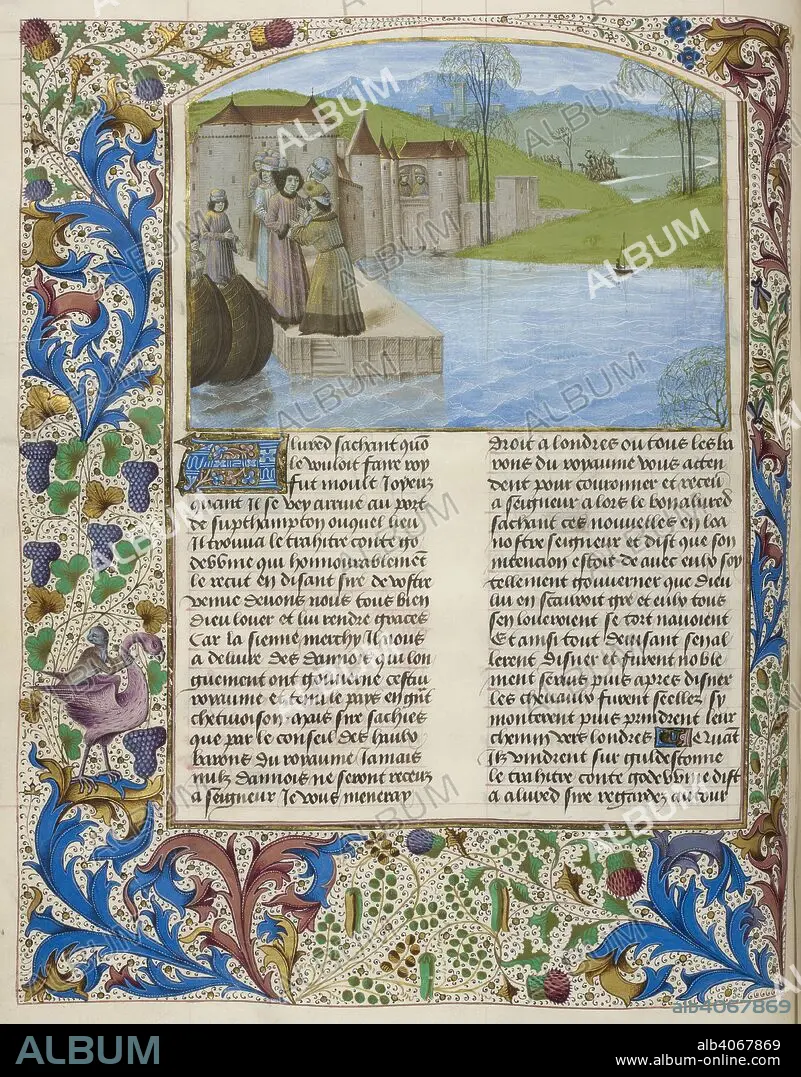 Alured sachant quō
le vouloit faire roy
fut moult Joyeux
quant Il se vey arrive au port
de supthampton ouquel lieu
Il trouva le trahitre conte go
debbine qui honnourablemēt
le recut en disant sire de vostre
venue devons nous tous bien
dieu louer et lui rendre graces
Car la sienne merchy Il nous
a delivre des dannois qui lon
guement ont gouverne cestui
royaume et tenu le pays en grāt
chetivoison Mais sire sachies
que par le conseil des haulx
barons du royaume Jamais
nulz dannois ne seront receuz
a seigneur Je vous meneray
droit a londres ou tous les ba
rons du royaume vous atten
dent pour couronner et recevoir
a seigneur a lors le bon alured
sachant ces nouvelles en loa
nostre seigneur et dist que son
intencion estoit de avec eulx soy
tellement gouverner que dieu
lui en scauroit gre et eulx tous
sen loueroient se tort navoient
Et ainsi tout devisant sen al
lerent disner et furent noble
ment servis puis apres disner
les chevaulx furent seellez sy
monterent puis prindrent leur
chemin vers londres Quant
Ilz vindrent sur guldestonne
le trahitre conte godebbine dist
a alured sire regardez autour
ALBUM
alb4067869
ALBUM
alb4067869
www.album-online.com